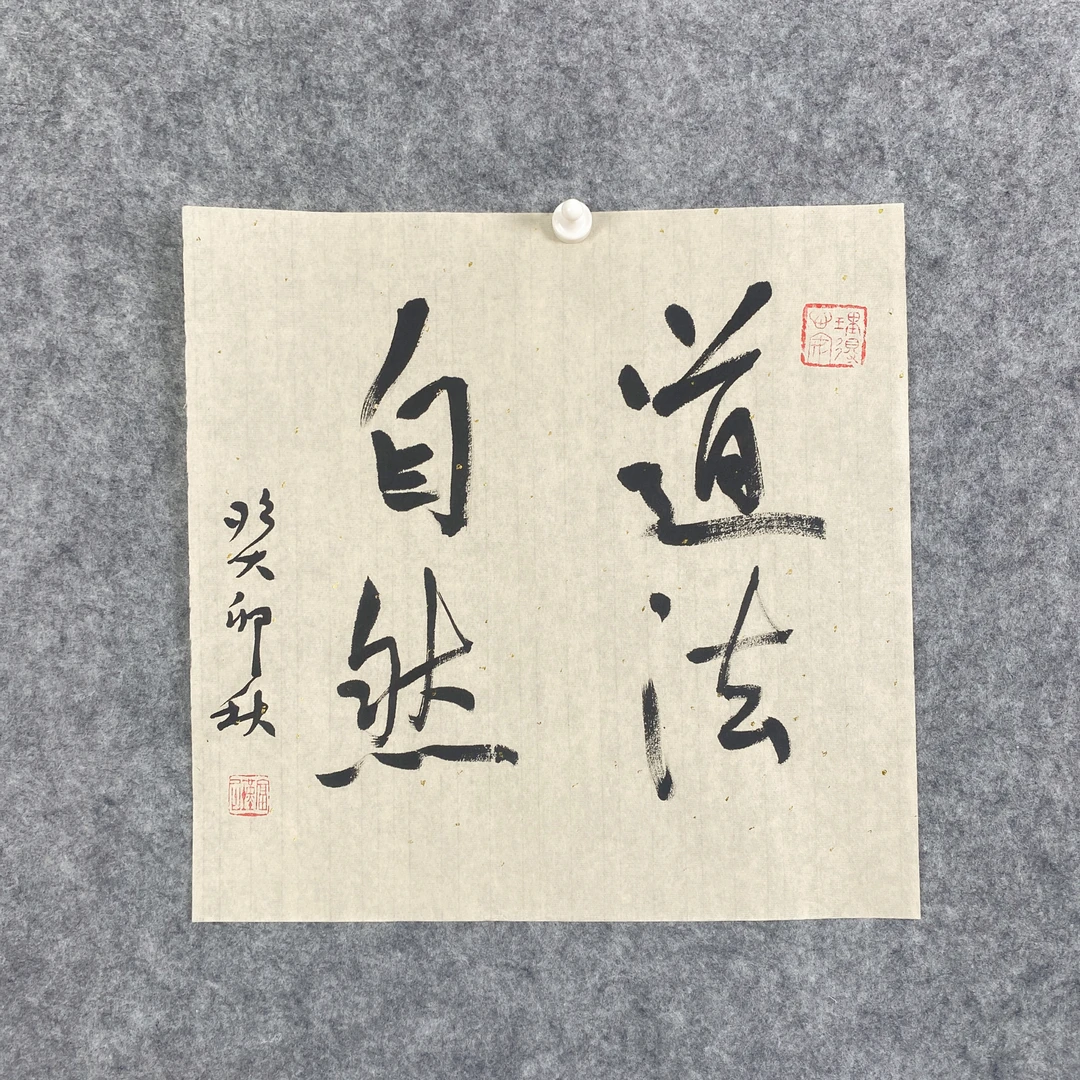 道法
自然
癸卯秋